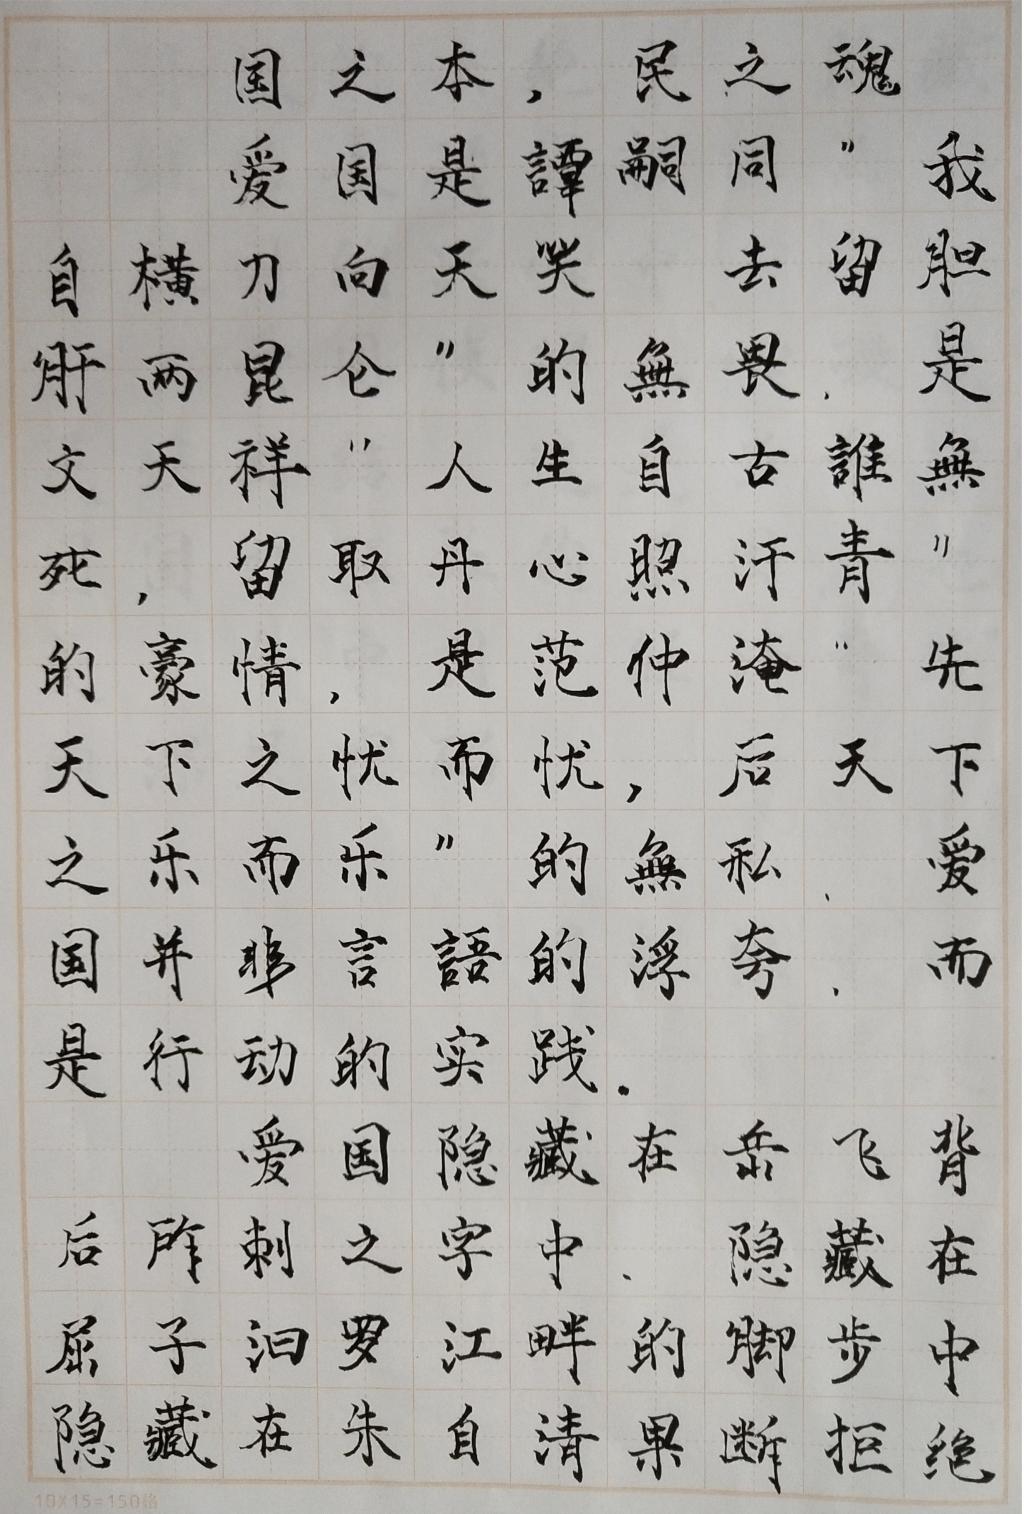 国之本，民之魂
爱国是譚嗣同"我
自橫刀向天笑 去留胆
肝两昆仑"的無畏.是
文天祥"人生自古誰無
死，留取丹心照汗青"
的豪情，是范仲淹"先
天下之忧而忧，后天下
之乐而乐"的無私.爱
国并非言語的浮夸.而
是行动的实践.
爱国隐藏在岳飞背
后所刺之字中. 隐藏在
屈子汩罗江畔的脚步中
隐藏在朱自清果断拒绝
10X15=150格